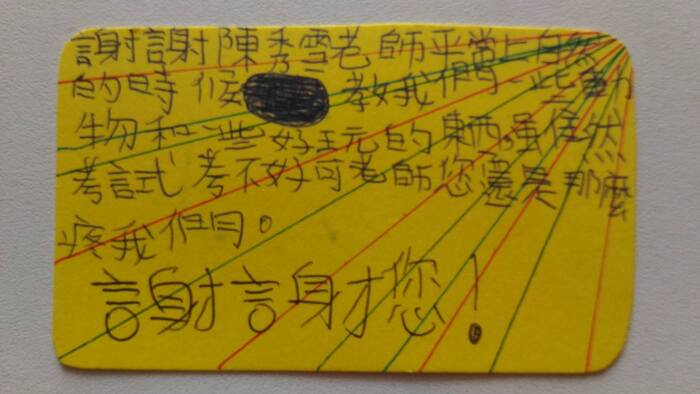 謝謝陳秀雪老師平常上自然
的時候教我們一些動
生物和一些好玩的東西。雖然
考試考不好可老師您還是那麼
疼我們。
謝謝您!